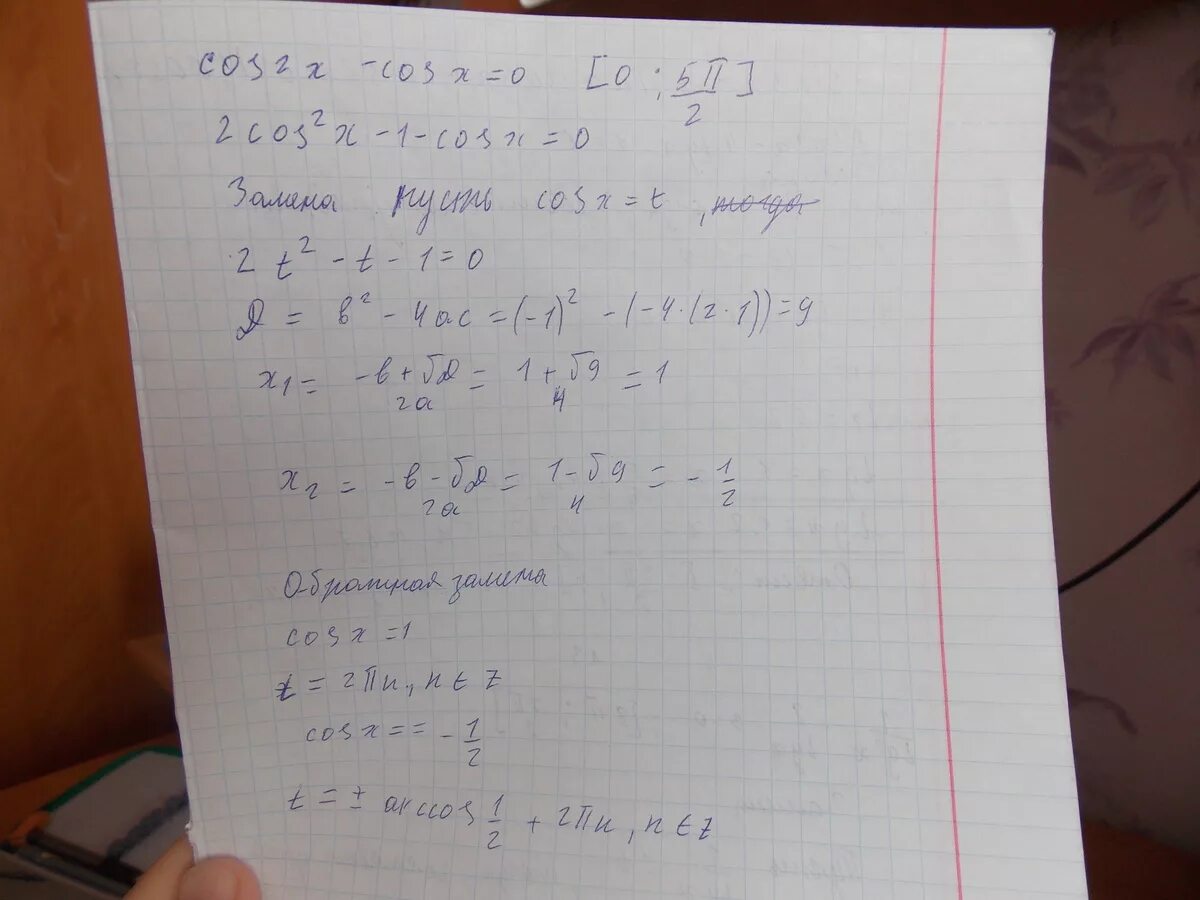 cos2x - cosx = 0 [0 ; 5π/2]
2cos²x - 1 - cosx = 0
Замена пусть cosx = t , тогда
2t² - t - 1 = 0
D = в² - 4ac = (-1)² - (-4·(2·1)) = 9
x₁ = (-в + √D)/2a = (1 + √9)/4 = 1
x₂ = (-в - √D)/2a = (1 - √9)/4 = -1/2
Обратная замена
cosx = 1
t = 2πn, n ∈ Z
cosx = = -1/2
t = ± arccos 1/2 + 2πn, n ∈ Z